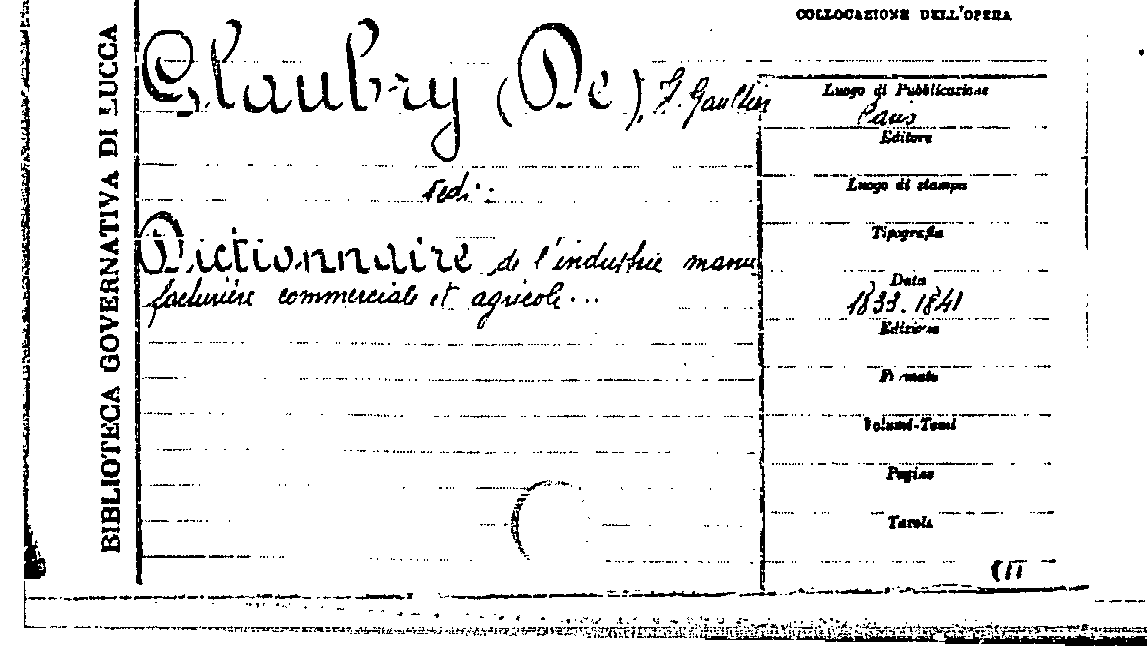 COLLOCAZIONE DELL'OPERA
BIBLIOTECA GOVERNATIVA DI LUCCA
Glaubry (De), H. Gaultier
vedi:
Dictionnaire de l'industrie manu
facturière commerciale et agricole...
Luogo di Pubblicazione
Paris
Editore
Luogo di stampa
Tipografia
Data
1833-1841
Edizione
Formato
Volumi-Tomi
Pagine
Tavole